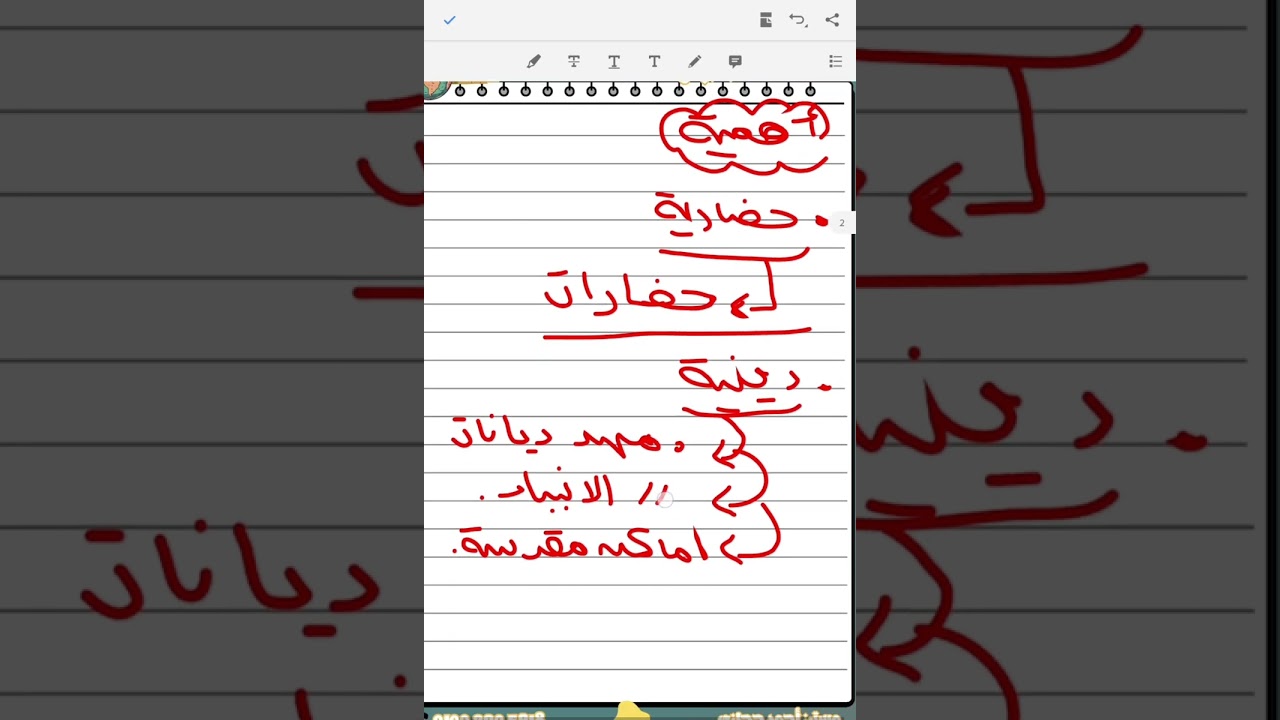 أهمية
2
. حضارية
حضارات
. دينية
. مهد ديانات
// الانبياء .
اماكن مقدسة .